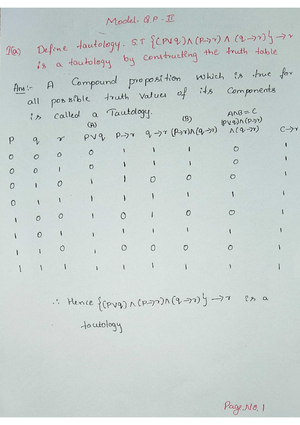 Model Q.P - II
Define tautology. S.T {(P∨q)∧(P→r)∧(q→r)}→r
is a tautology by constructing the truth table
Ans:- A Compound proposition which is true for
all possible truth values of its components
is called a Tautology.
(A) (B) A∧B=C
P q r P∨q P→r q→r (P→r)∧(q→r) (P∨q)∧(P→r)∧(q→r) C→r
0 0 0 0 1 1 1 0 1
0 0 1 0 1 1 1 0 1
0 1 0 1 1 0 0 0 1
0 1 1 1 1 1 1 1 1
1 0 0 1 0 1 0 0 1
1 0 1 1 1 1 1 1 1
1 1 0 1 0 0 0 0 1
1 1 1 1 1 1 1 1 1
∴ Hence {(P∨q)∧(P→r)∧(q→r)}→r is a
tautology
Page No. 1